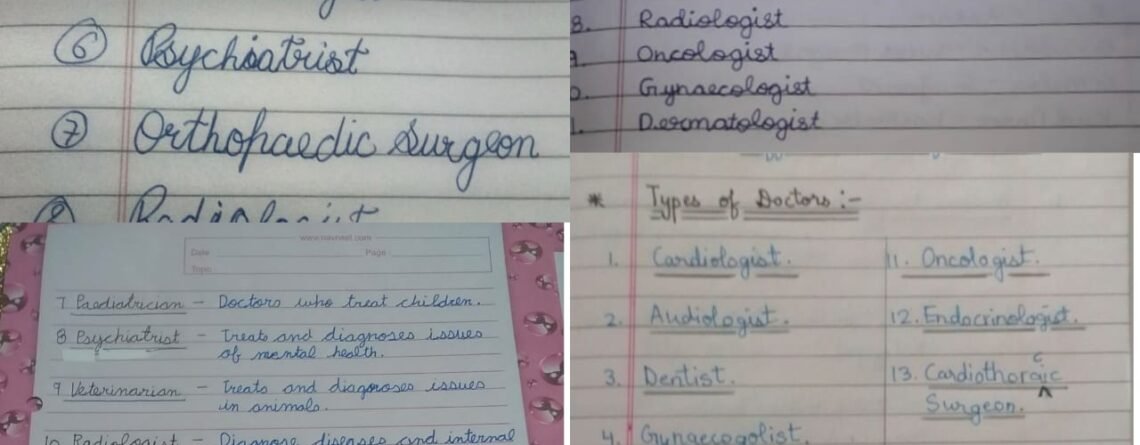 6 Psychiatrist
7 Orthopaedic Surgeon
8 Radiologist
8. Radiologist
Oncologist
Gynaecologist
Dermatologist
Date Page
Topic
7 Paediatrician - Doctors who treat children.
8 Psychiatrist - Treats and diagnoses issues
of mental health.
9 Veterinarian - Treats and diagnoses issues
in animals.
10 Radiologist - Diagnose diseases and internal
* Types of Doctors :-
1. Cardiologist.
2. Audiologist.
3. Dentist.
4. Gynaecogolist.
11. Oncologist.
12. Endocrinologist.
13. Cardiothoraic
c
Surgeon.